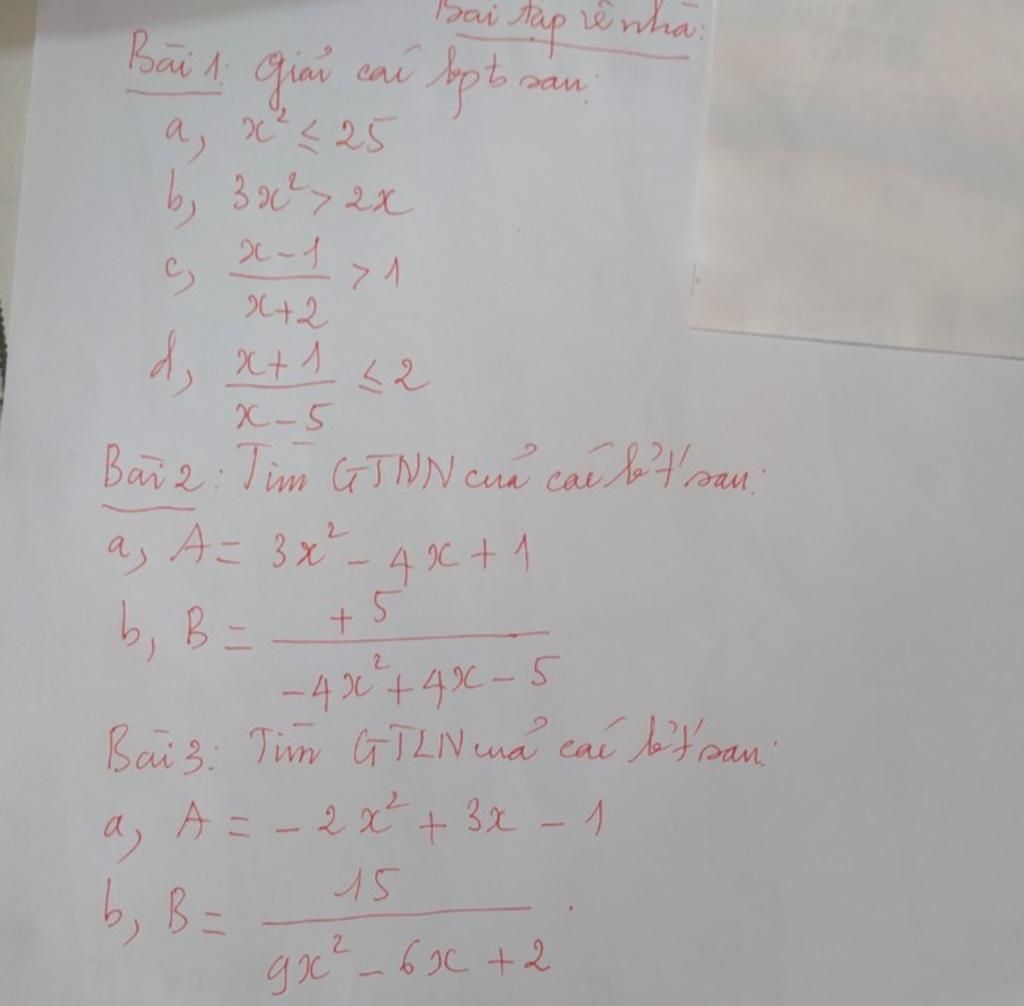 Bài tập về nhà:
Bài 1: Giải các bpt sau:
a, x² ≤ 25
b, 3x² > 2x
c, \frac{x-1}{x+2} > 1
d, \frac{x+1}{x-5} ≤ 2
Bài 2: Tìm GTNN của các b't' sau:
a, A = 3x² - 4x + 1
b, B = \frac{+5}{-4x²+4x-5}
Bài 3: Tìm GTLN của các b't' sau:
a, A = -2x² + 3x - 1
b, B = \frac{15}{9x²-6x+2}.